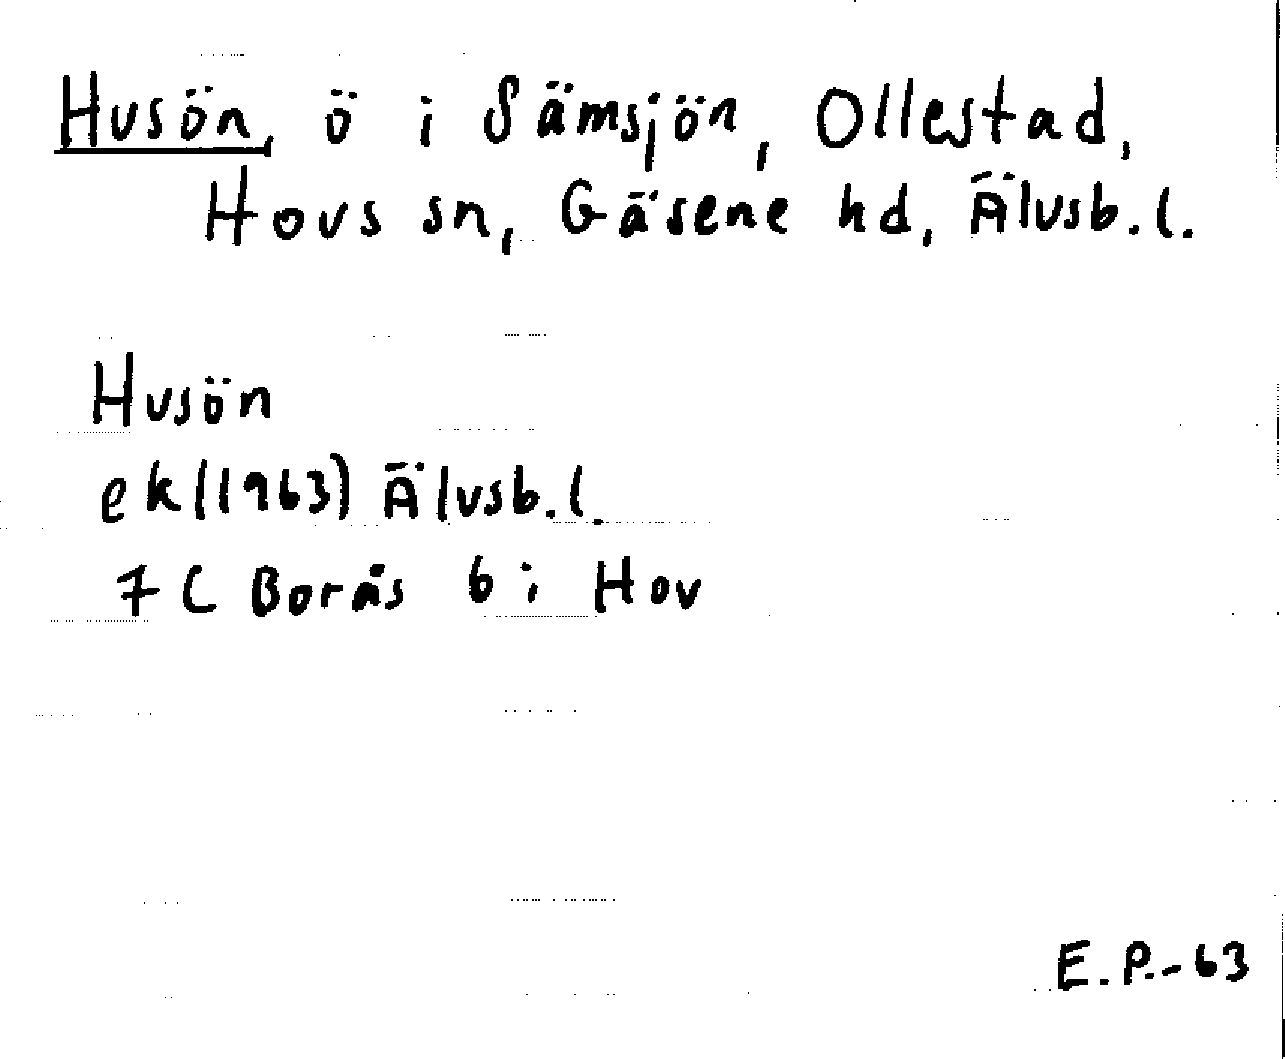 Husön, ö i Sämsjön, Ollestad,
Hovs sn, Gäsene hd, Älvsb. l.
Husön
ek (1963) Älvsb. l.
7 C Borås 6 i Hov
E. P. - 63